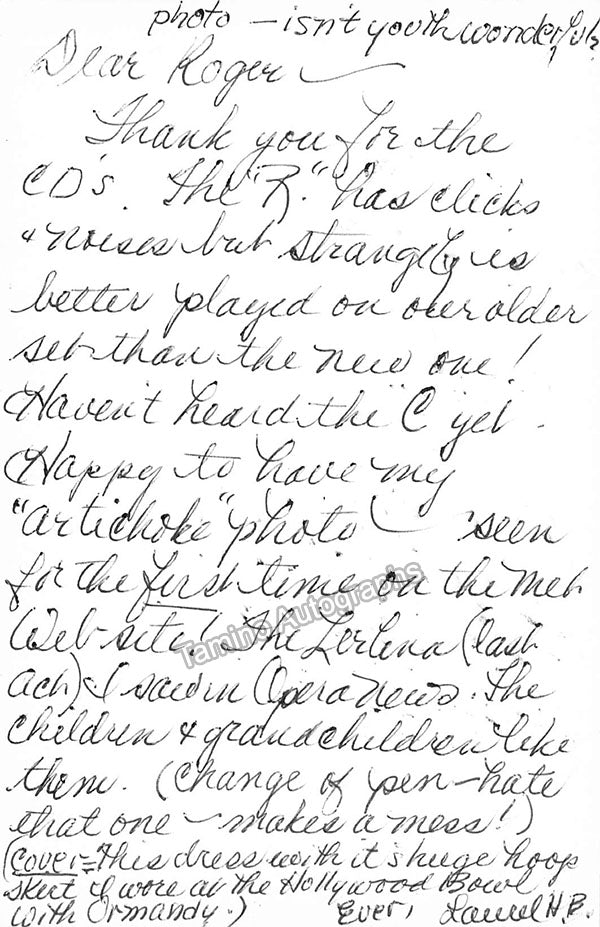 photo — isn't youth wonderful?
Dear Roger —
Thank you for the
CD's. The "R." has clicks
& noises but strangely is
better played on our older
set than the new one!
Haven't heard the "C" yet.
Happy to have my
"artichoke" photo — seen
for the first time on the Met
Web site! The Zerlina (last
act) I saw in Opera News. The
children & grandchildren like
them. (Change of pen — hate
that one — makes a mess!)
(Cover = This dress with it's huge hoop
skirt I wore at the Hollywood Bowl
with Ormandy.) Ever, Laurel H.B.
Tamino Autographs